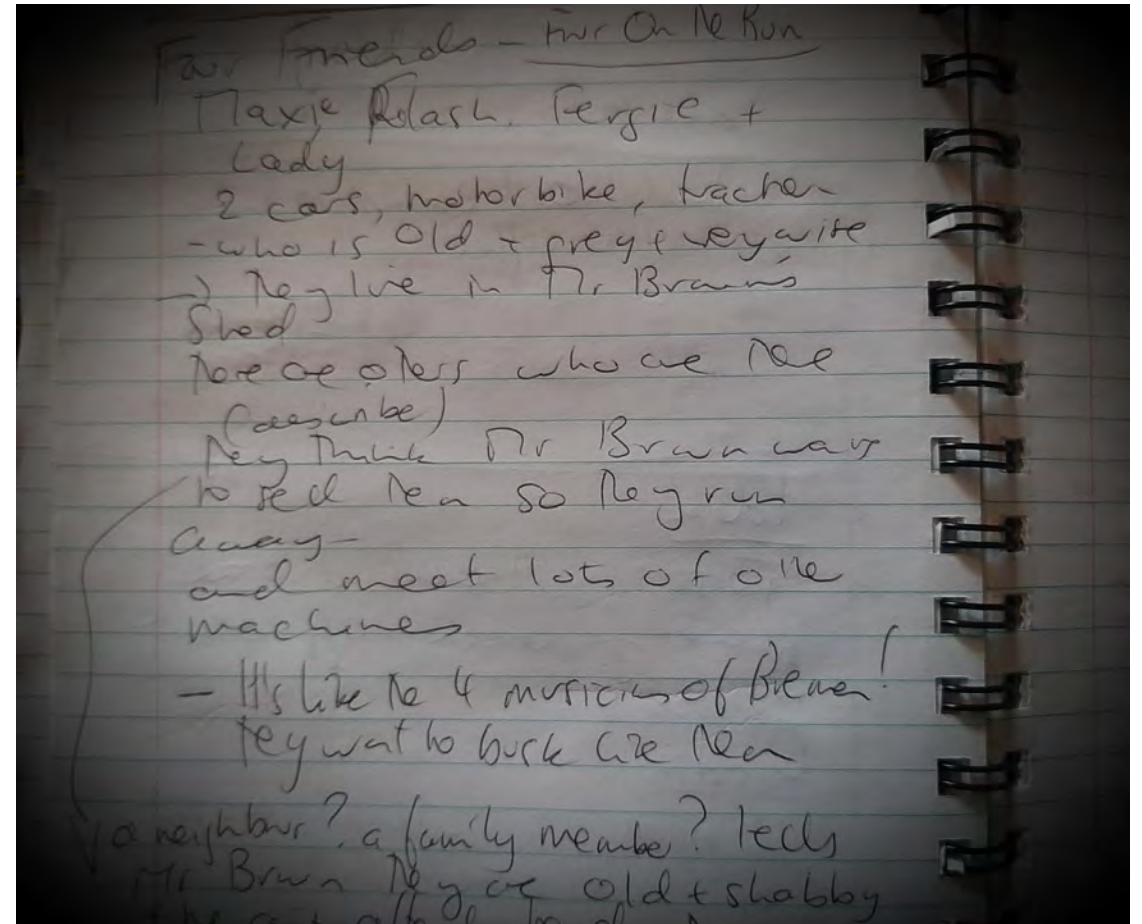 Four Friends - Four On The Run
Maxie Rolash. Fergie +
Lady
2 cars, motorbike, tractor
- who is Old + grey + very wise
→ They live in Mr Brown's
Shed
There are others who are there
(describe)
They think Mr Brown wants
to sell them so they run
away -
and meet lots of other
machines
- It's like the 4 musicians of Bremen!
they want to busk like them
a neighbour? a family member? tells
Mr Brown they are old + shabby